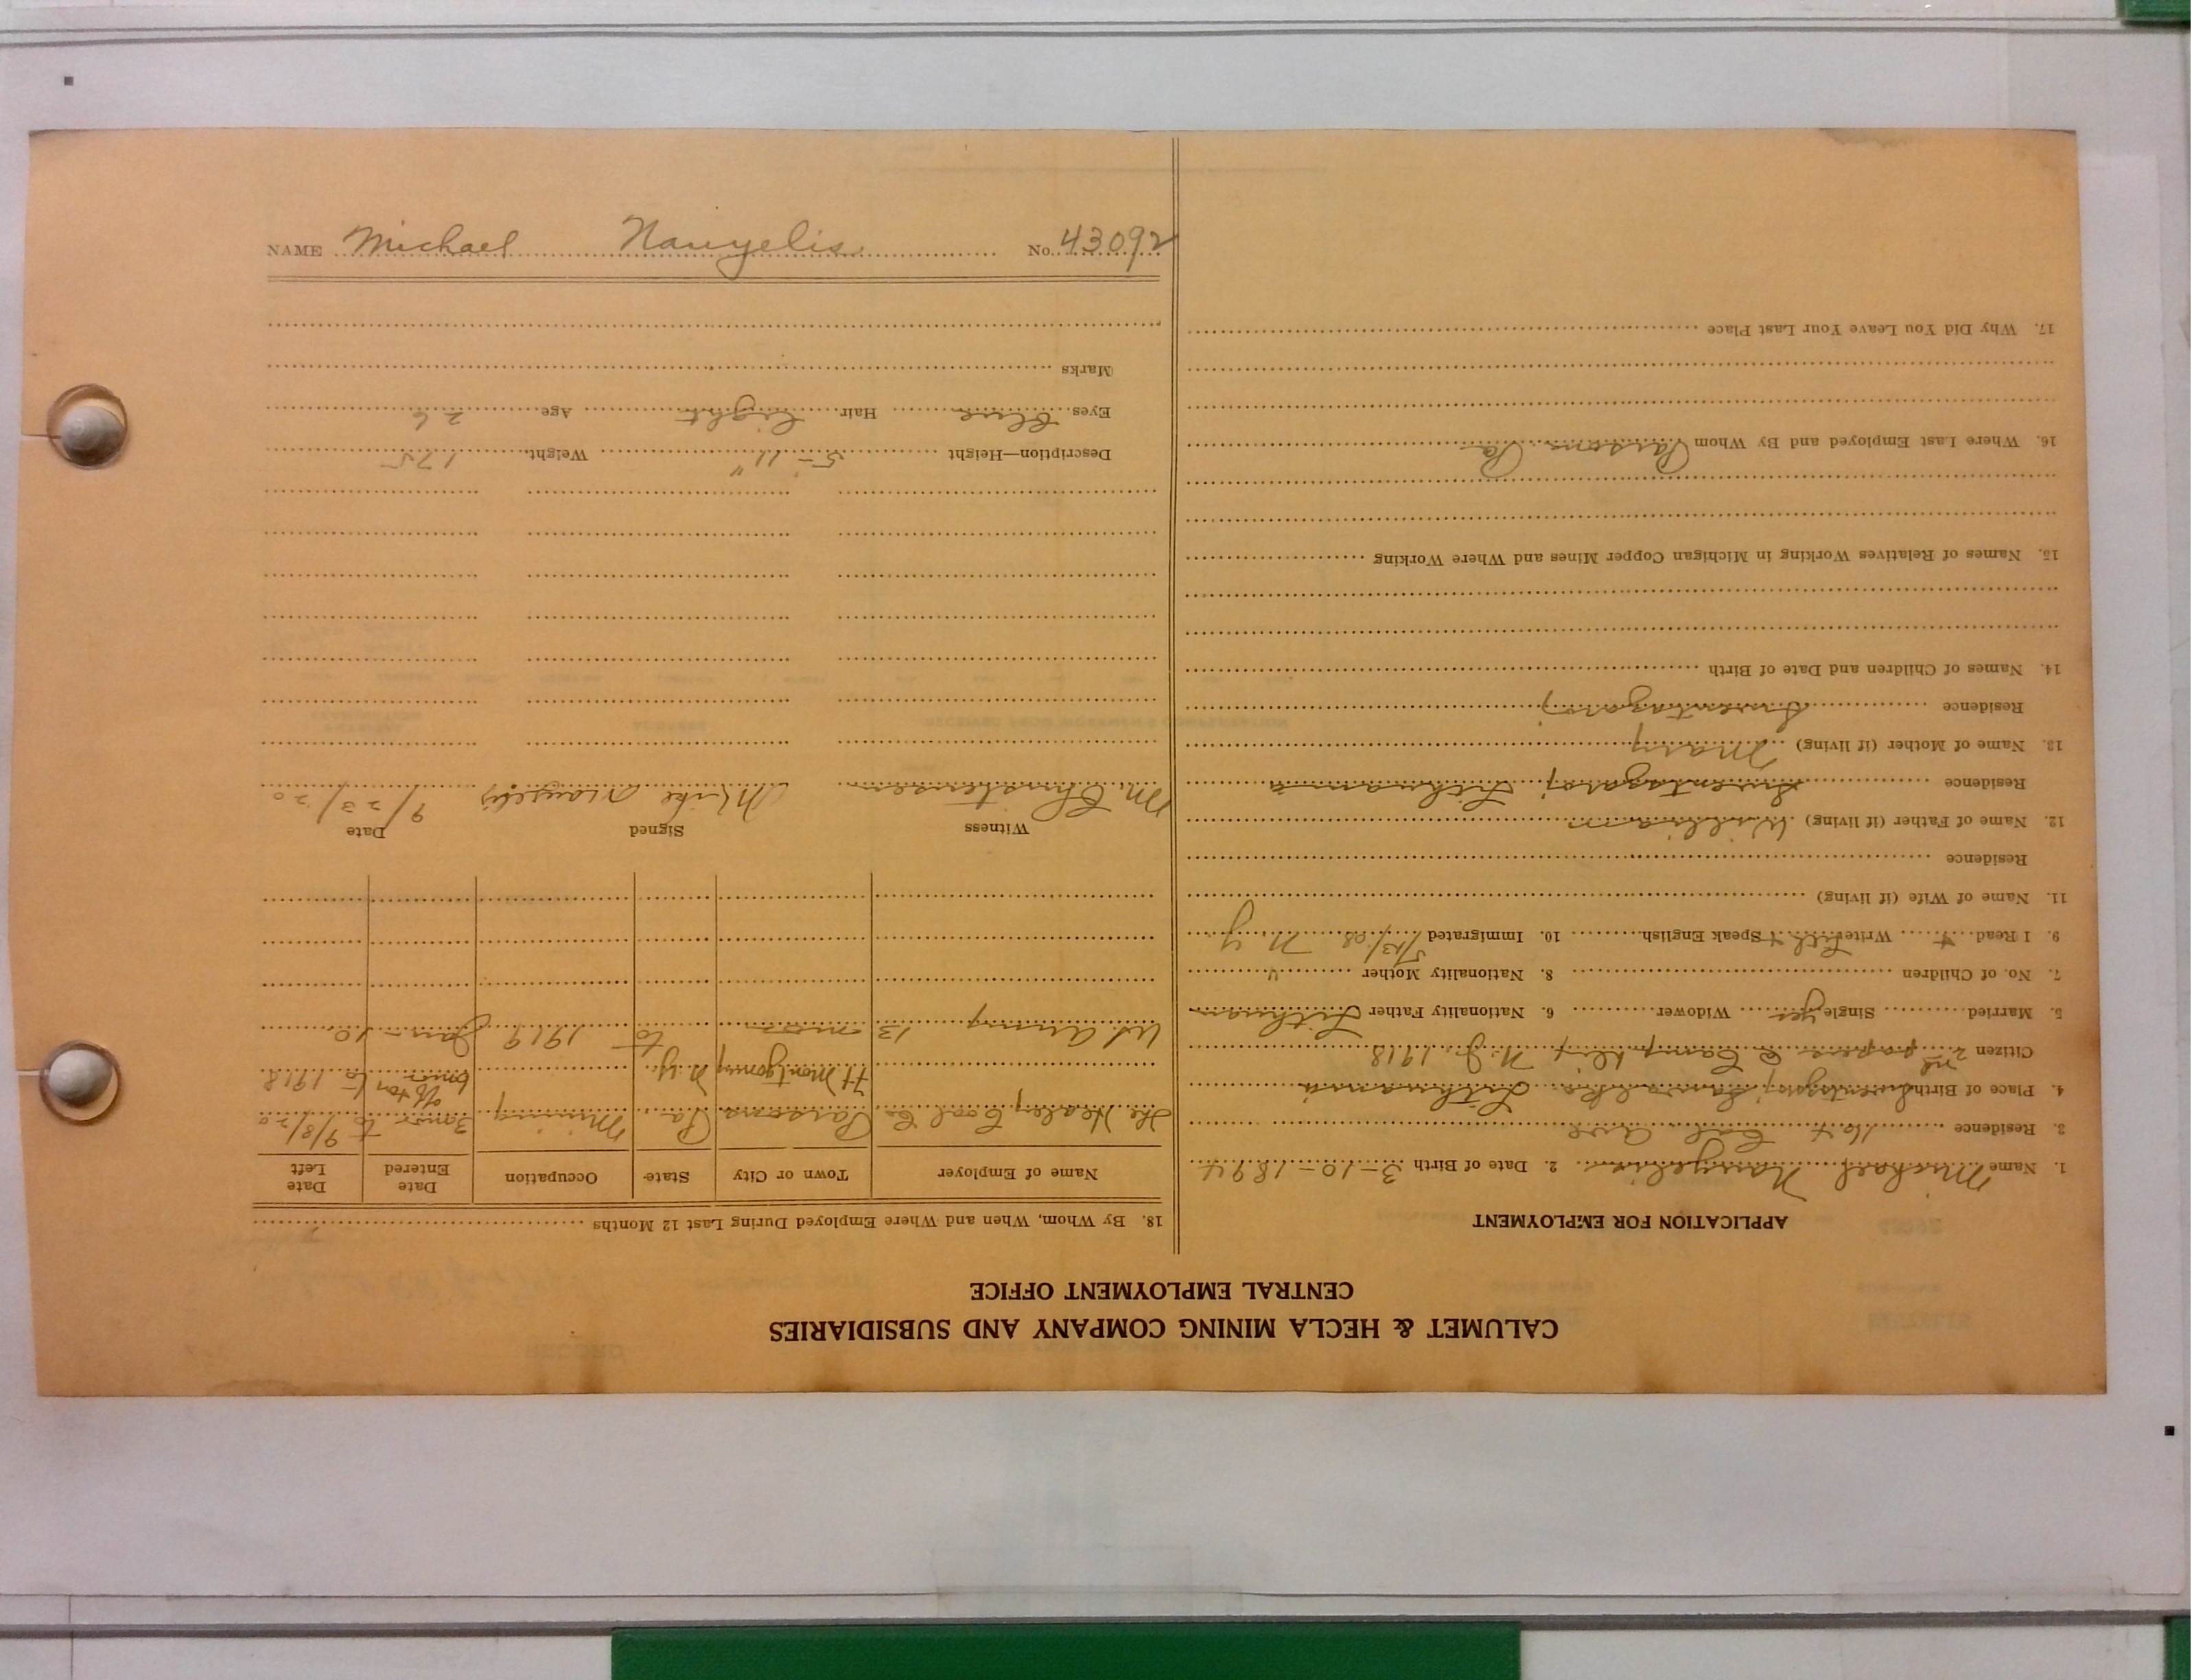 NAME Michael Nauyelis No. 43092
CALUMET & HECLA MINING COMPANY AND SUBSIDIARIES
CENTRAL EMPLOYMENT OFFICE
APPLICATION FOR EMPLOYMENT
1. Name Michael Nauyelis 2. Date of Birth 3-10-1894
3. Residence Cal ave
4. Place of Birth Lithuania
Citizen 2nd papers @ Camp Dix N.J. 1918
5. Married Single yes Widower 6. Nationality Father Lithuan
7. No. of Children 8. Nationality Mother "
9. I Read + Write Lith + Speak English 10. Immigrated 5/13/08 N.Y
11. Name of Wife (if living)
Residence
12. Name of Father (if living) William
Residence Sventagaroj Lithuania
13. Name of Mother (if living) Mary
Residence Sventagaroj
14. Names of Children and Date of Birth
15. Names of Relatives Working in Michigan Copper Mines and Where Working
16. Where Last Employed and By Whom Parsons Pa
17. Why Did You Leave Your Last Place
18. By Whom, When and Where Employed During Last 12 Months
Name of Employer Town or City State Occupation Date Entered Date Left
The Healey Coal Co Parsons Pa. Mining to 9/8/20
Ft Montgomery N.Y. 1918
U.S. Army 13 mos to 1919 Jan - 10
Witness Signed Date
M. Christensen Mike Nauyelis 9/23/20
Description—Height 5-11" Weight 175
Eyes Blue Hair light Age 26
Marks